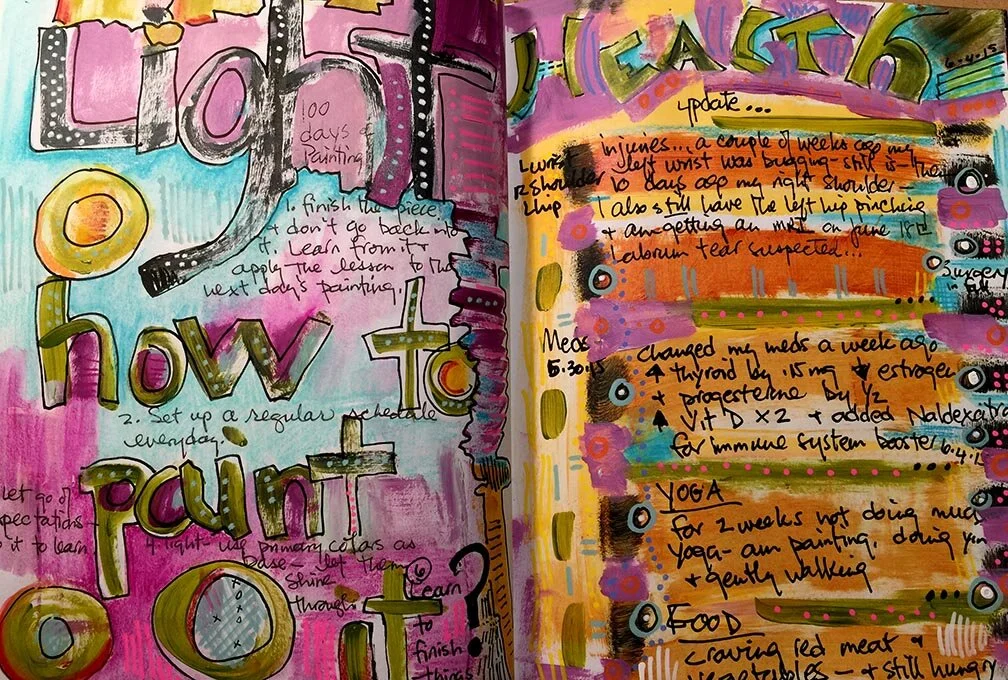 Light
100
days of
Painting
1. finish the piece
+ don't go back into
it. Learn from it +
apply the lesson to the
next day's painting.
how to
2. Set up a regular schedule
everyday.
paint
let go of
pectations—
it to learn
light— use primary colors as
base— let them
shine
through
it
6
Learn
to
finish
things
?
HEALTH
6.4.15
update...
L wrist
R shoulder
L hip
injuries... a couple of weeks ago my
left wrist was bugging— still is— then
10 days ago my right shoulder—
I also still have the left hip pinching
+ am getting an MRI on June 18th
labrum tear suspected...
Surgery
in fall
Meds
5.30.15
changed my meds a week ago
↑ thyroid by .15mg ↓ estrogen
+ progesterone by 1/2
↑ Vit D x 2 + added
for immune system booster 6.4.1
YOGA
for 2 weeks not doing much
yoga— am painting, doing yin
+ gently walking
FOOD
craving red meat +
vegetables — + still hungry